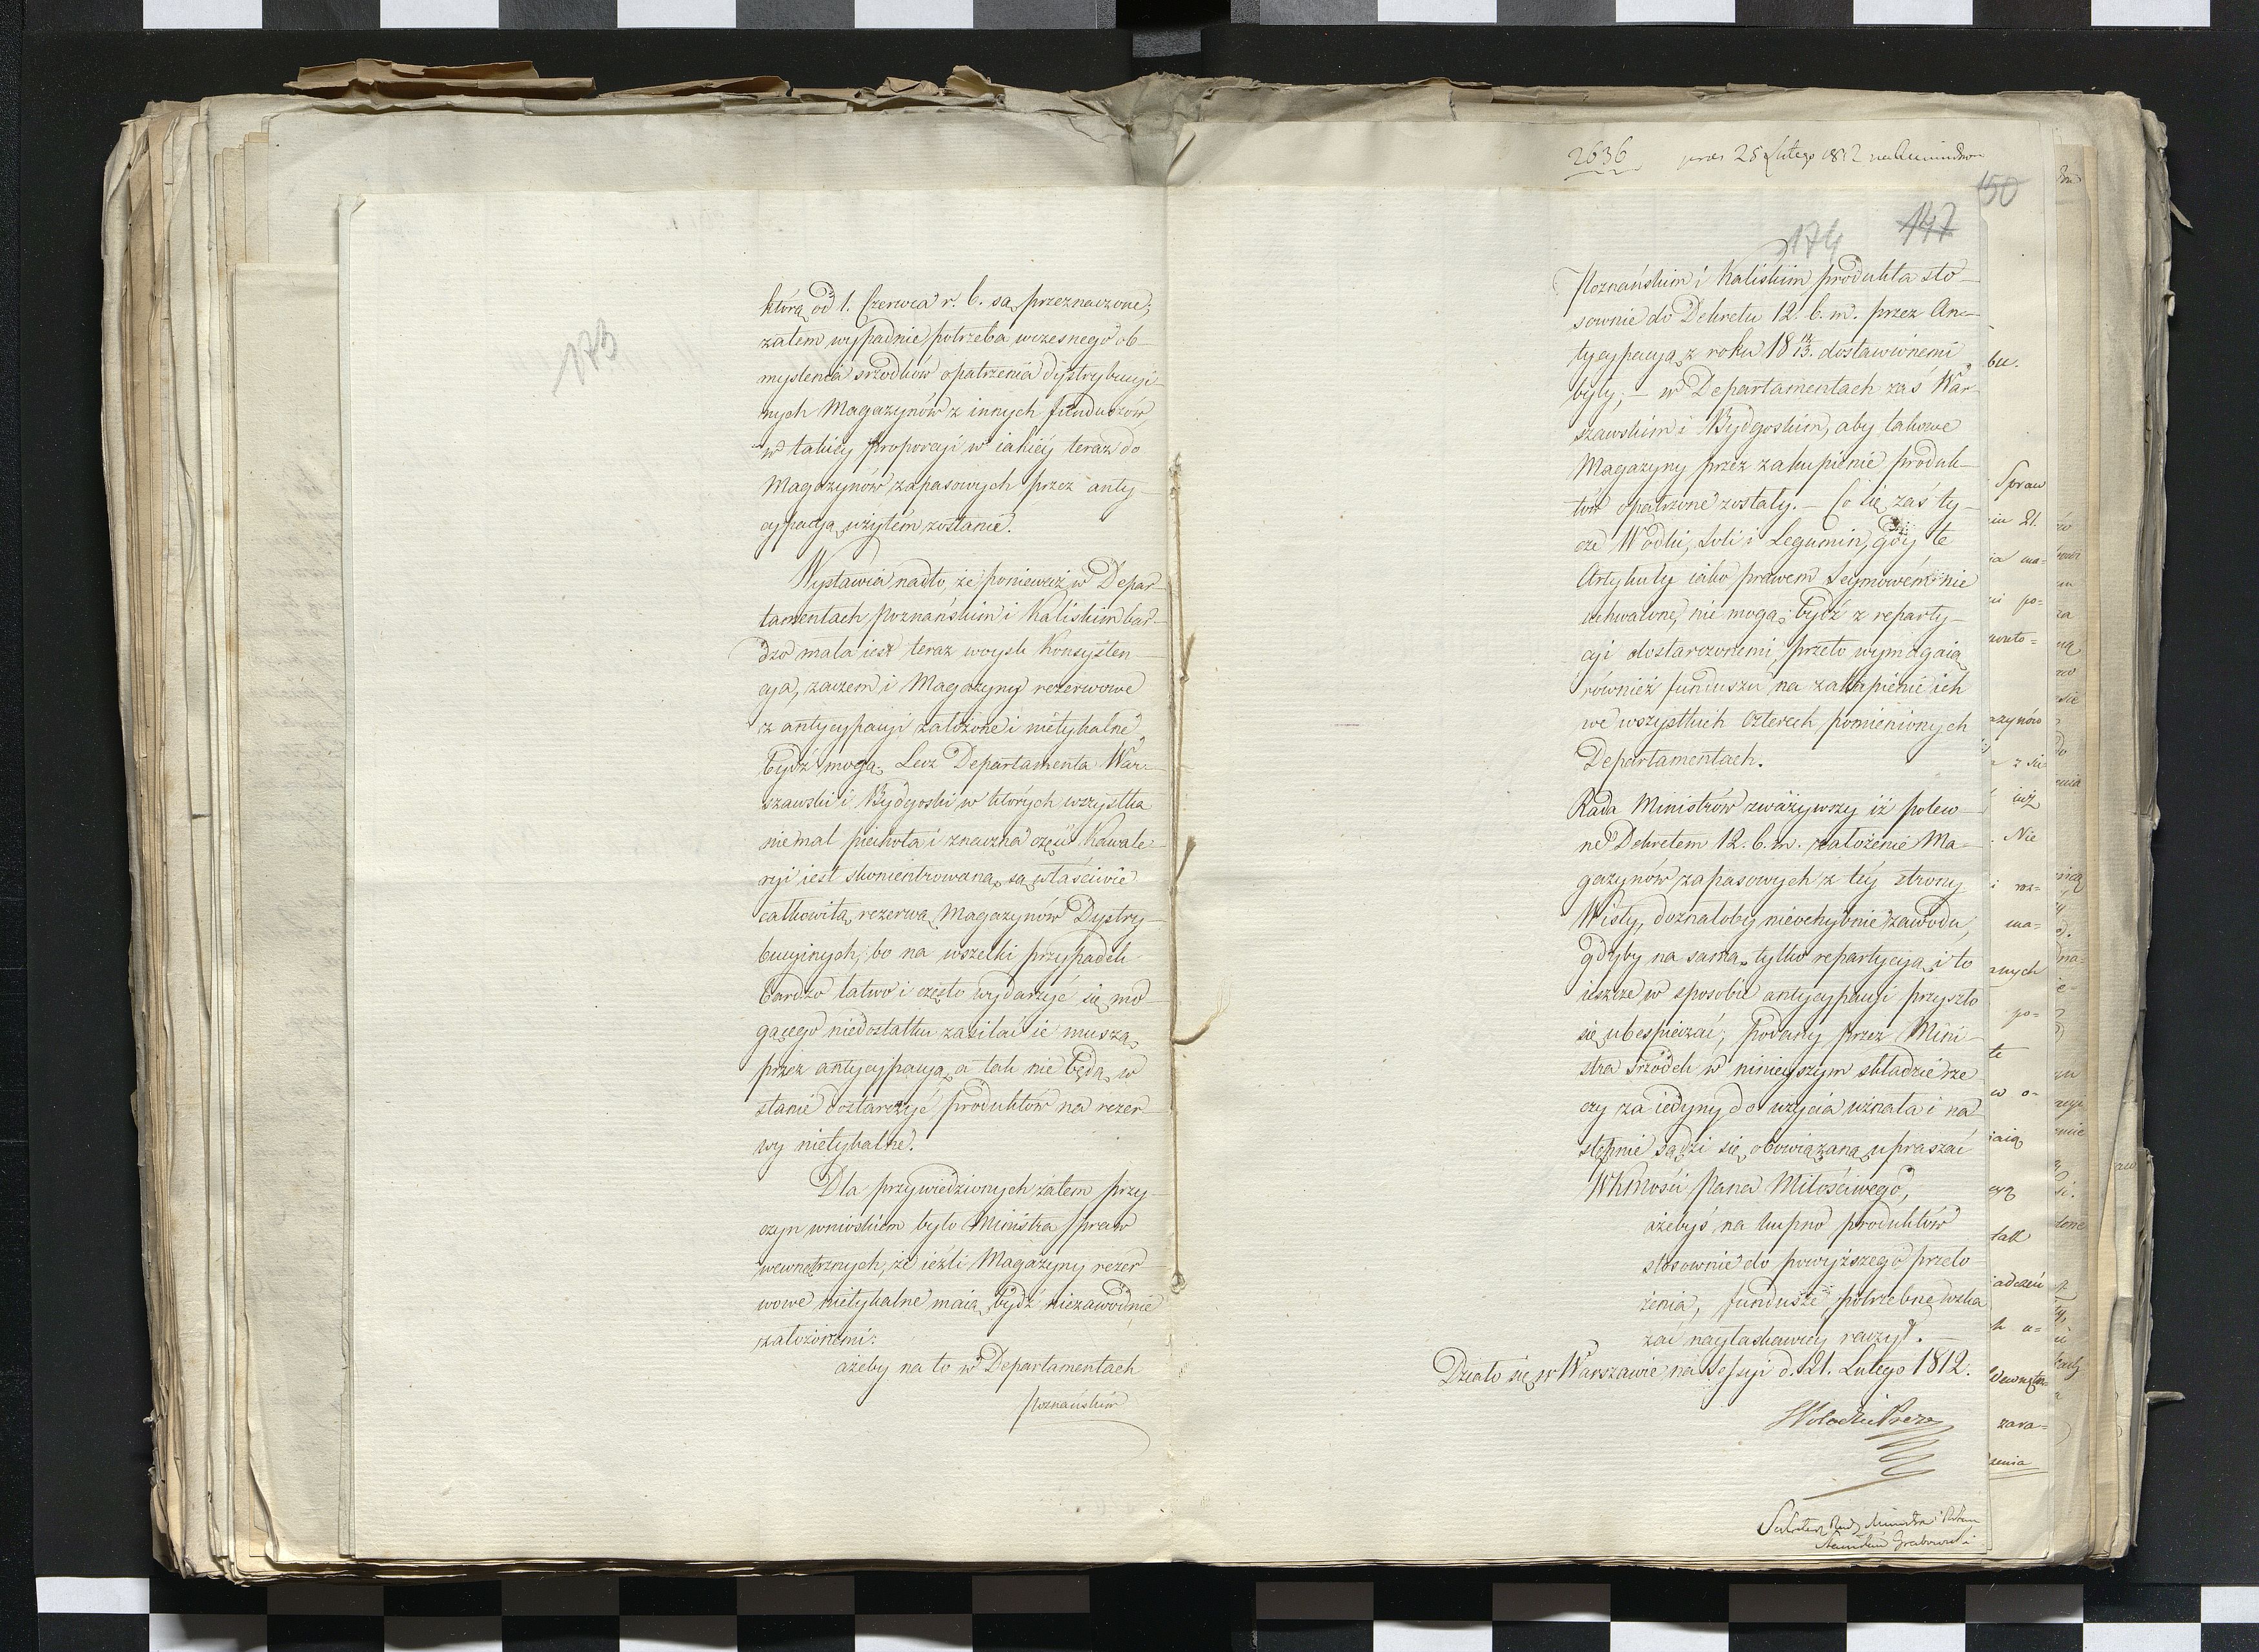 173
którą od 1. Czerwca r. b. są przeznaczone;
zatem wypadnie potrzeba wczesnego ob-
myslenia srzodków opatrzenia dystrybucyi-
nych Magazynów z innych funduszów
w takiey proporcyi w iakiéy teraz do
Magazynów zapasowych przez anty-
cypacyą użytém zostanie.
Wystawia nadto, że ponieważ w Depar-
tamentach Poznańskim i Kaliskim bar-
dzo mała iest teraz woysk Konsysten-
cya, zaczem i Magazyny rezerwowe
z antycypacyi założone i nietykalne
bydź mogą. Lecz Departamenta War-
szawski i Bydgoski w których wszystka
niemal piechota i znaczna część Kawale-
ryi iest skoncentrowana, są właściwie
całkowitą rezerwą Magazynów Dystry-
bucyinych; bo na wszelki przypadek
bardzo łatwo i często wydarzyć się mo-
gącego niedostatku zasilać ie muszą
przez antycypacyą, a tak nie będą w
stanie dostarczyć produktów na rezer-
wy nietykalne.
Dla przywiedzionych zatem przy-
czyn wnioskiem było Ministra Spraw
wewnętrznych, że ieżli Magazyny rezer-
wowe nietykalne maią bydź niezawodnie
założonemi:
ażeby na to w Departamentach
Poznańskim
2636 25 Lutego 1812
150
174 147
Poznańskim i Kaliskim produkta sto-
sownie do Dekretu 12. b. m. przez An-
tycypacyą z roku 18 12/13. dostawionemi
były; – w Departamentach zaś War-
szawskim i Bydgoskim, aby takowe
Magazyny przez zakupienie produk-
tów opatrzone zostały. – Co się zaś ty-
cze Wódki, Soli i Legumin, gdy te
Artykuły iako prawem Seymowém nie
uchwalone, nie mogą bydź z reparty-
cyi dostarczonemi, przeto wymagaią
również funduszu na zakupienie ich
we wszystkich czterech pomienionych
Departamentach.
Rada Ministrów zważywszy iż polew-
ne Dekretem 12. b. m. założenie Ma-
gazynów zapasowych z téy strony
Wisły, doznałoby nieochybnie zawodu,
gdyby na samą tylko repartycyą i to
ieszcze w sposobie antycypacyi przyszło
się ubespieczać; podany przez Mini-
stra srzodek w ninieyszym składzie rze
czy za iedyny do użycia uznała i na-
stępnie sądzi się obowiązaną upraszać
WKMości Pana Miłościwego,
ażebyś na kupno produktów
stosownie do powyższego przeło
żenia, fundusze potrzebne wska
zać nayłaskawiey raczył. –
Działo się w Warszawie na Sessyi d. 21. Lutego 1812.
Sekretarz Rady Ministrów i Stanu
Grabowski